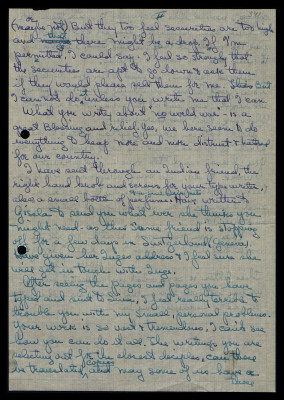 (maybe not) But they too feel securities are too high
and there might be a drop. If I'm
permitted, I could say, I feel so strongly that
the securities are apt to go down & ask them
if they would please sell them for me. But
I cannot do, unless you write me that I can.
What you write about no world war - is a
great Blessing and relief. Yes, we here seem to do
everything to heap more and more distrust & hatred
for our country.
I have sent through an Indian friend, the
right hand knob and screws for your typewriter.
Also a small bottle of perfume. Have written
to send you what ever she thinks you
might need - as this same friend is stopping
off for a few days in Switzerland, Geneva,
given her address & I feel sure she
will get in touch with
After seeing the pages and pages you have
typed and sent to I just really tremble to
trouble you with my small, personal problems.
Your work is so vast & tremendous, I can't see
how you can do it all. The writings you are
selecting out for the closest disciples, can these
be translated, and may some of us have a